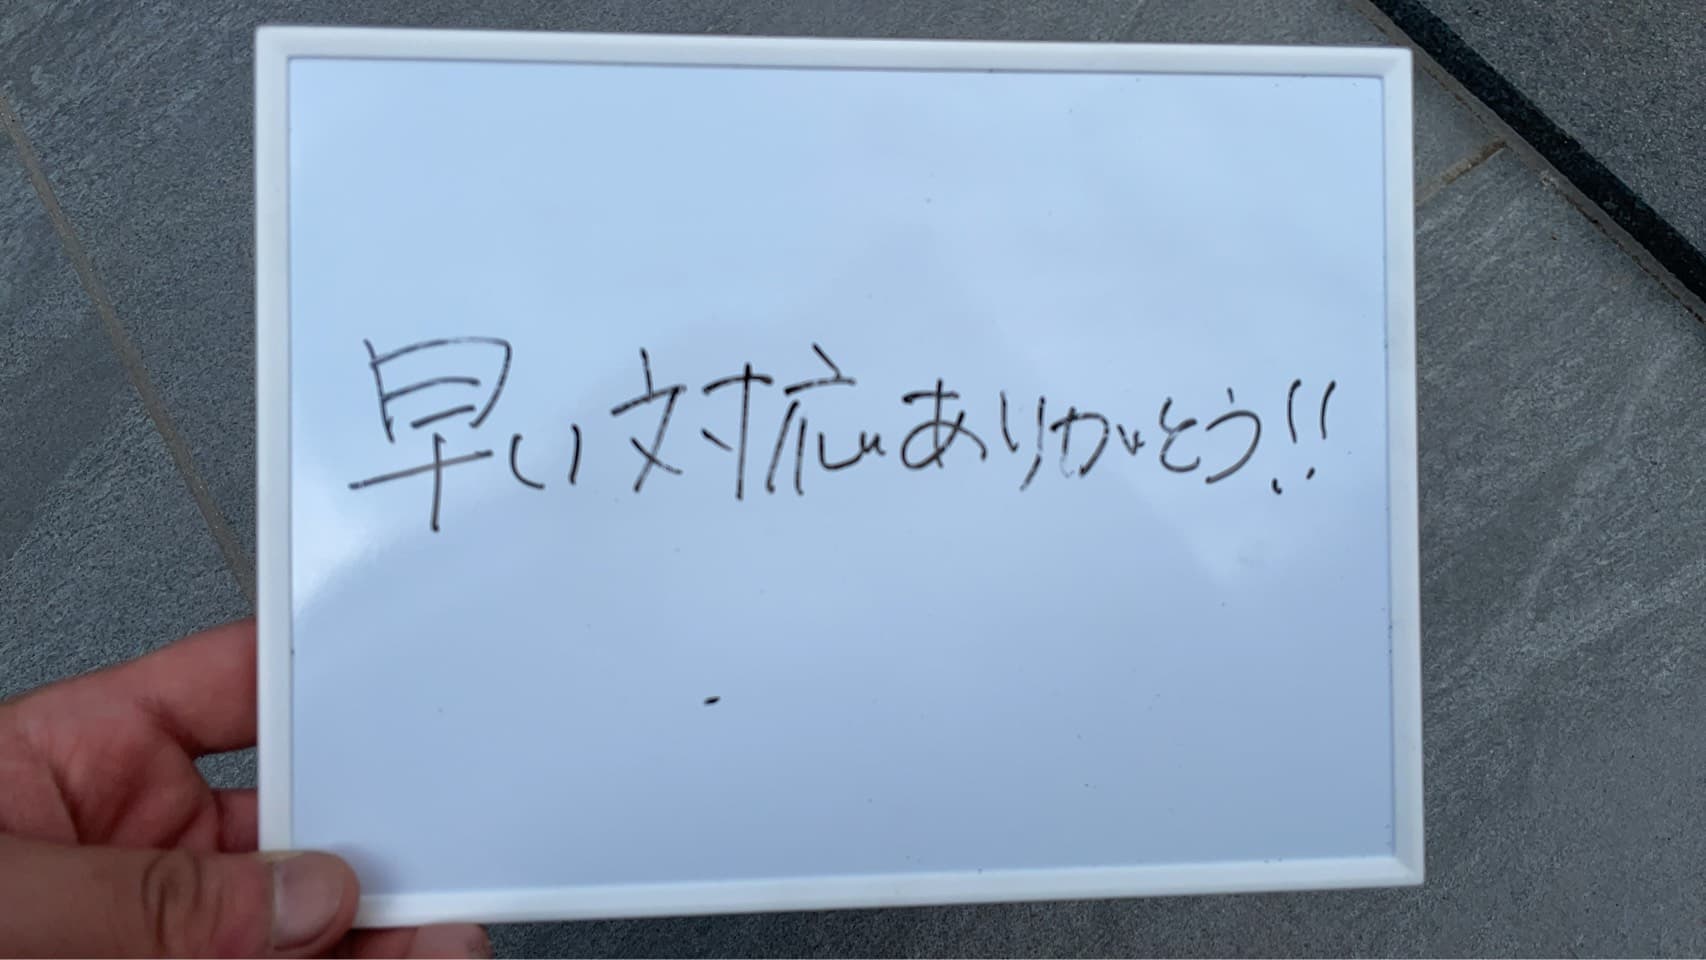 早い対応ありがとう!!